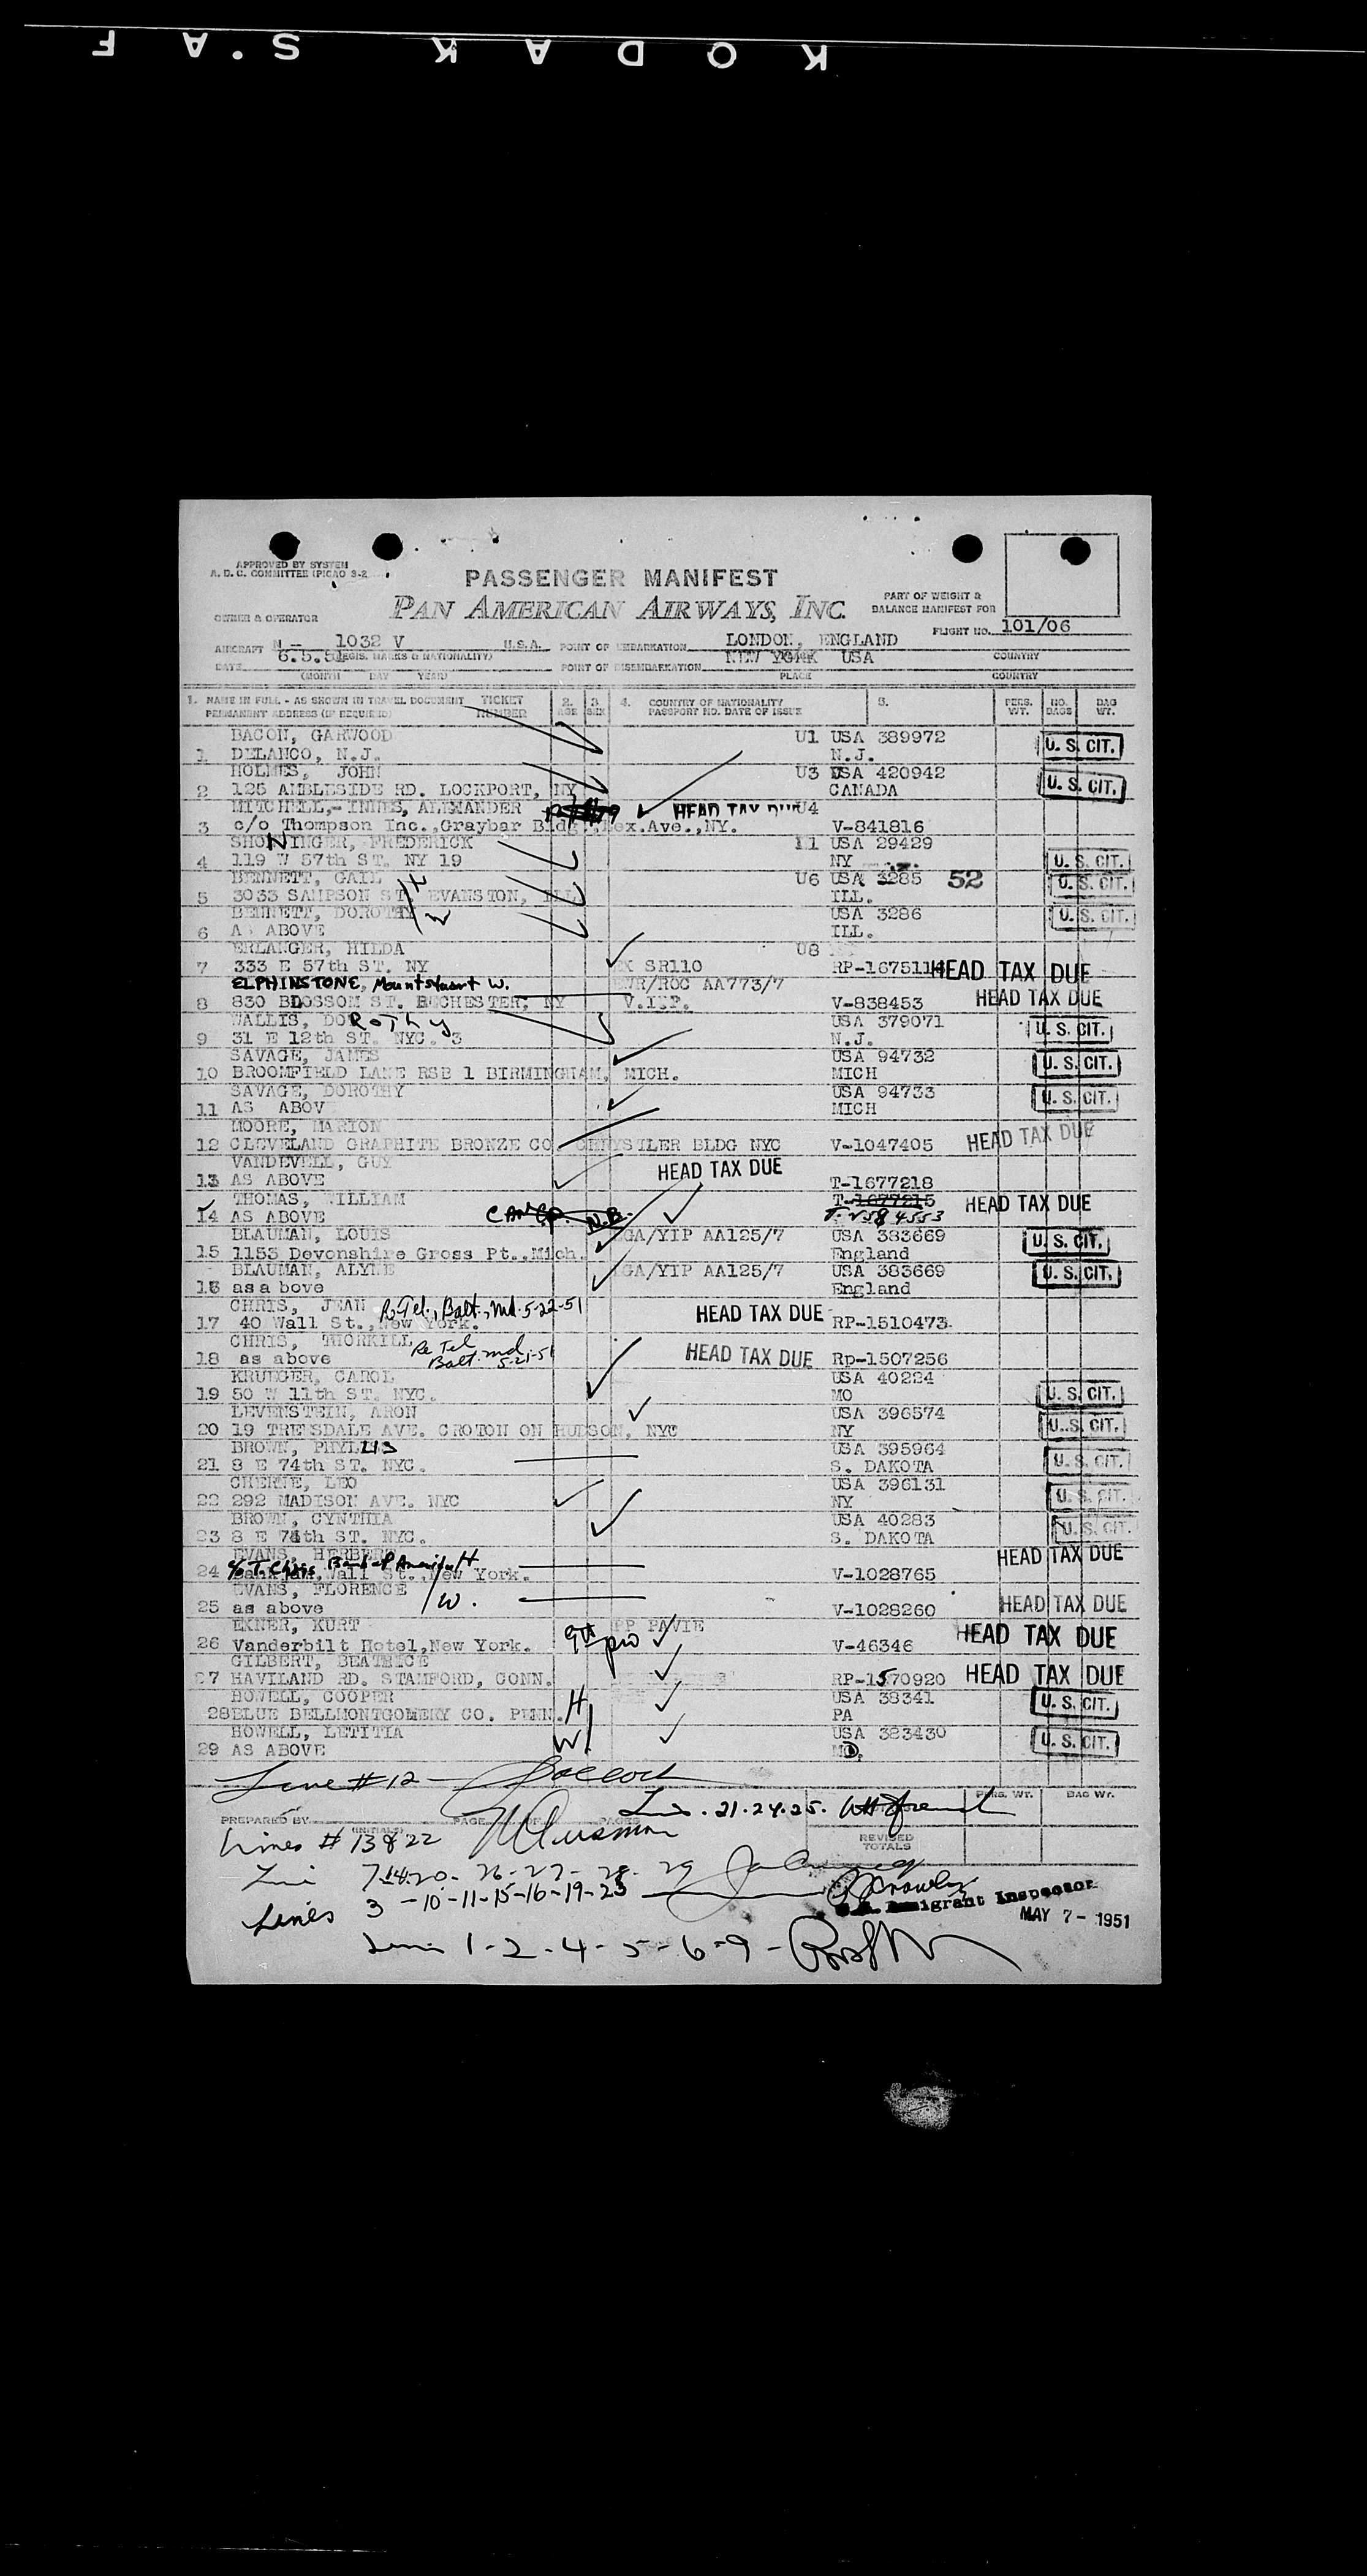 KODAK S.A.F
APPROVED BY SYSTEM
A. D. C. COMMITTEE (PICAO 3-2
PASSENGER MANIFEST
PAN AMERICAN AIRWAYS, INC.
OWNER & OPERATOR
PART OF WEIGHT &
BALANCE MANIFEST FOR
FLIGHT NO. 101/06
AIRCRAFT N - 1032 V U.S.A. POINT OF EMBARKATION LONDON, ENGLAND
(REGIS. MARKS & NATIONALITY)
DATE 6.5.51 POINT OF DISEMBARKATION NEW YORK USA COUNTRY
(MONTH DAY YEAR) PLACE COUNTRY
1. NAME IN FULL - AS SHOWN IN TRAVEL DOCUMENT TICKET 2. 3. 4. COUNTRY OF NATIONALITY 5. PERS. NO. BAG
PERMANENT ADDRESS (IF REQUIRED) NUMBER AGE SEX PASSPORT NO. DATE OF ISSUE WT. BAGS WT.
BACON, GARWOOD U1 USA 389972 U. S. CIT.
1 DELANCO, N.J. N.J.
HOLMES, JOHN U3 USA 420942
2 125 AMBLESIDE RD. LOCKPORT, NY CANADA U. S. CIT.
MITCHELL,-INNES, ALEXANDER HEAD TAX DUE U4
3 c/o Thompson Inc.,Graybar Bldg.,Lex.Ave.,NY. V-841816
SHONINGER, FREDERICK USA 29429
4 119 W 57th ST. NY 19 NY U. S. CIT.
BENNETT, GAIL U6 USA 3285 52 U. S. CIT.
5 3033 SAMPSON ST EVANSTON, ILL ILL.
BENNETT, DOROTHY W USA 3286 U. S. CIT.
6 AS ABOVE ILL.
ERLANGER, HILDA U8
7 333 E 57th ST. NY SR110 RP-1675114 HEAD TAX DUE
ELPHINSTONE, Mountstuart W. EWR/ROC AA773/7 HEAD TAX DUE
8 830 BLOSSOM ST. ROCHESTER, NY V.I.P. V-838453
WALLIS, DOROTHY USA 379071 U. S. CIT.
9 31 E 12th ST. NYC. 3 N.J.
SAVAGE, JAMES USA 94732 U. S. CIT.
10 BROOMFIELD LANE RSB 1 BIRMINGHAM, MICH. MICH
SAVAGE, DOROTHY USA 94733 U. S. CIT.
11 AS ABOV MICH
MOORE, MARION
12 CLEVELAND GRAPHITE BRONZE CO CHRYSTLER BLDG NYC V-1047405 HEAD TAX DUE
VANDEVELL, GUY HEAD TAX DUE
13 AS ABOVE T-1677218
THOMAS, WILLIAM T-1677215 HEAD TAX DUE
14 AS ABOVE N.B.
BLAUMAN, LOUIS LGA/YIP AA125/7 USA 383669 U. S. CIT.
15 1153 Devonshire Gross Pt.,Mich. England
BLAUMAN, ALYNE LGA/YIP AA125/7 USA 383669 U. S. CIT.
16 as a bove England
CHRIS, JEAN Re Tel., Balt., Md. 5-22-51 HEAD TAX DUE
17 40 Wall St.,New York. RP-1510473
CHRIS, THORKILL Re Tel Balt. Md 5-21-51
18 as above HEAD TAX DUE Rp-1507256
KRUEGER, CAROL USA 40224
19 50 W 11th ST. NYC. MO U. S. CIT.
LEVENSTEIN, ARON USA 396574 U. S. CIT.
20 19 TRUESDALE AVE. CROTON ON HUDSON, NYC NY
BROWN, PHYLLIS USA 395964 U. S. CIT.
21 8 E 74th ST. NYC. S. DAKOTA
CHERNE, LEO USA 396131 U. S. CIT.
22 292 MADISON AVE. NYC NY
BROWN, CYNTHIA USA 40283 U. S. CIT.
23 8 E 74th ST. NYC. S. DAKOTA
EVANS, HERBERT H HEAD TAX DUE
24 Wall St.,New York. V-1028765
EVANS, FLORENCE W.
25 as above V-1028260 HEAD TAX DUE
EKNER, KURT HEAD TAX DUE
26 Vanderbilt Hotel,New York. V-46346
GILBERT, BEATRICE
27 HAVILAND RD. STAMFORD, CONN. RP-1570920 HEAD TAX DUE
HOWELL, COOPER H USA 38341 U. S. CIT.
28 BLUE BELLMONTGOMERY CO. PENN. PA
HOWELL, LETITIA W USA 383430 U. S. CIT.
29 AS ABOVE
Line # 12 -
Lines 21-24-25.
PERS. WT. BAG WT.
PREPARED BY (INITIALS) PAGE OF PAGES
Lines # 13 & 22
REVISED
TOTALS
7-14-20- 26-27-28-29
Lines 3 -10-11-15-16-19-23
U.S. Immigrant Inspector
MAY 7 - 1951
Lines 1-2-4-5-6-9-